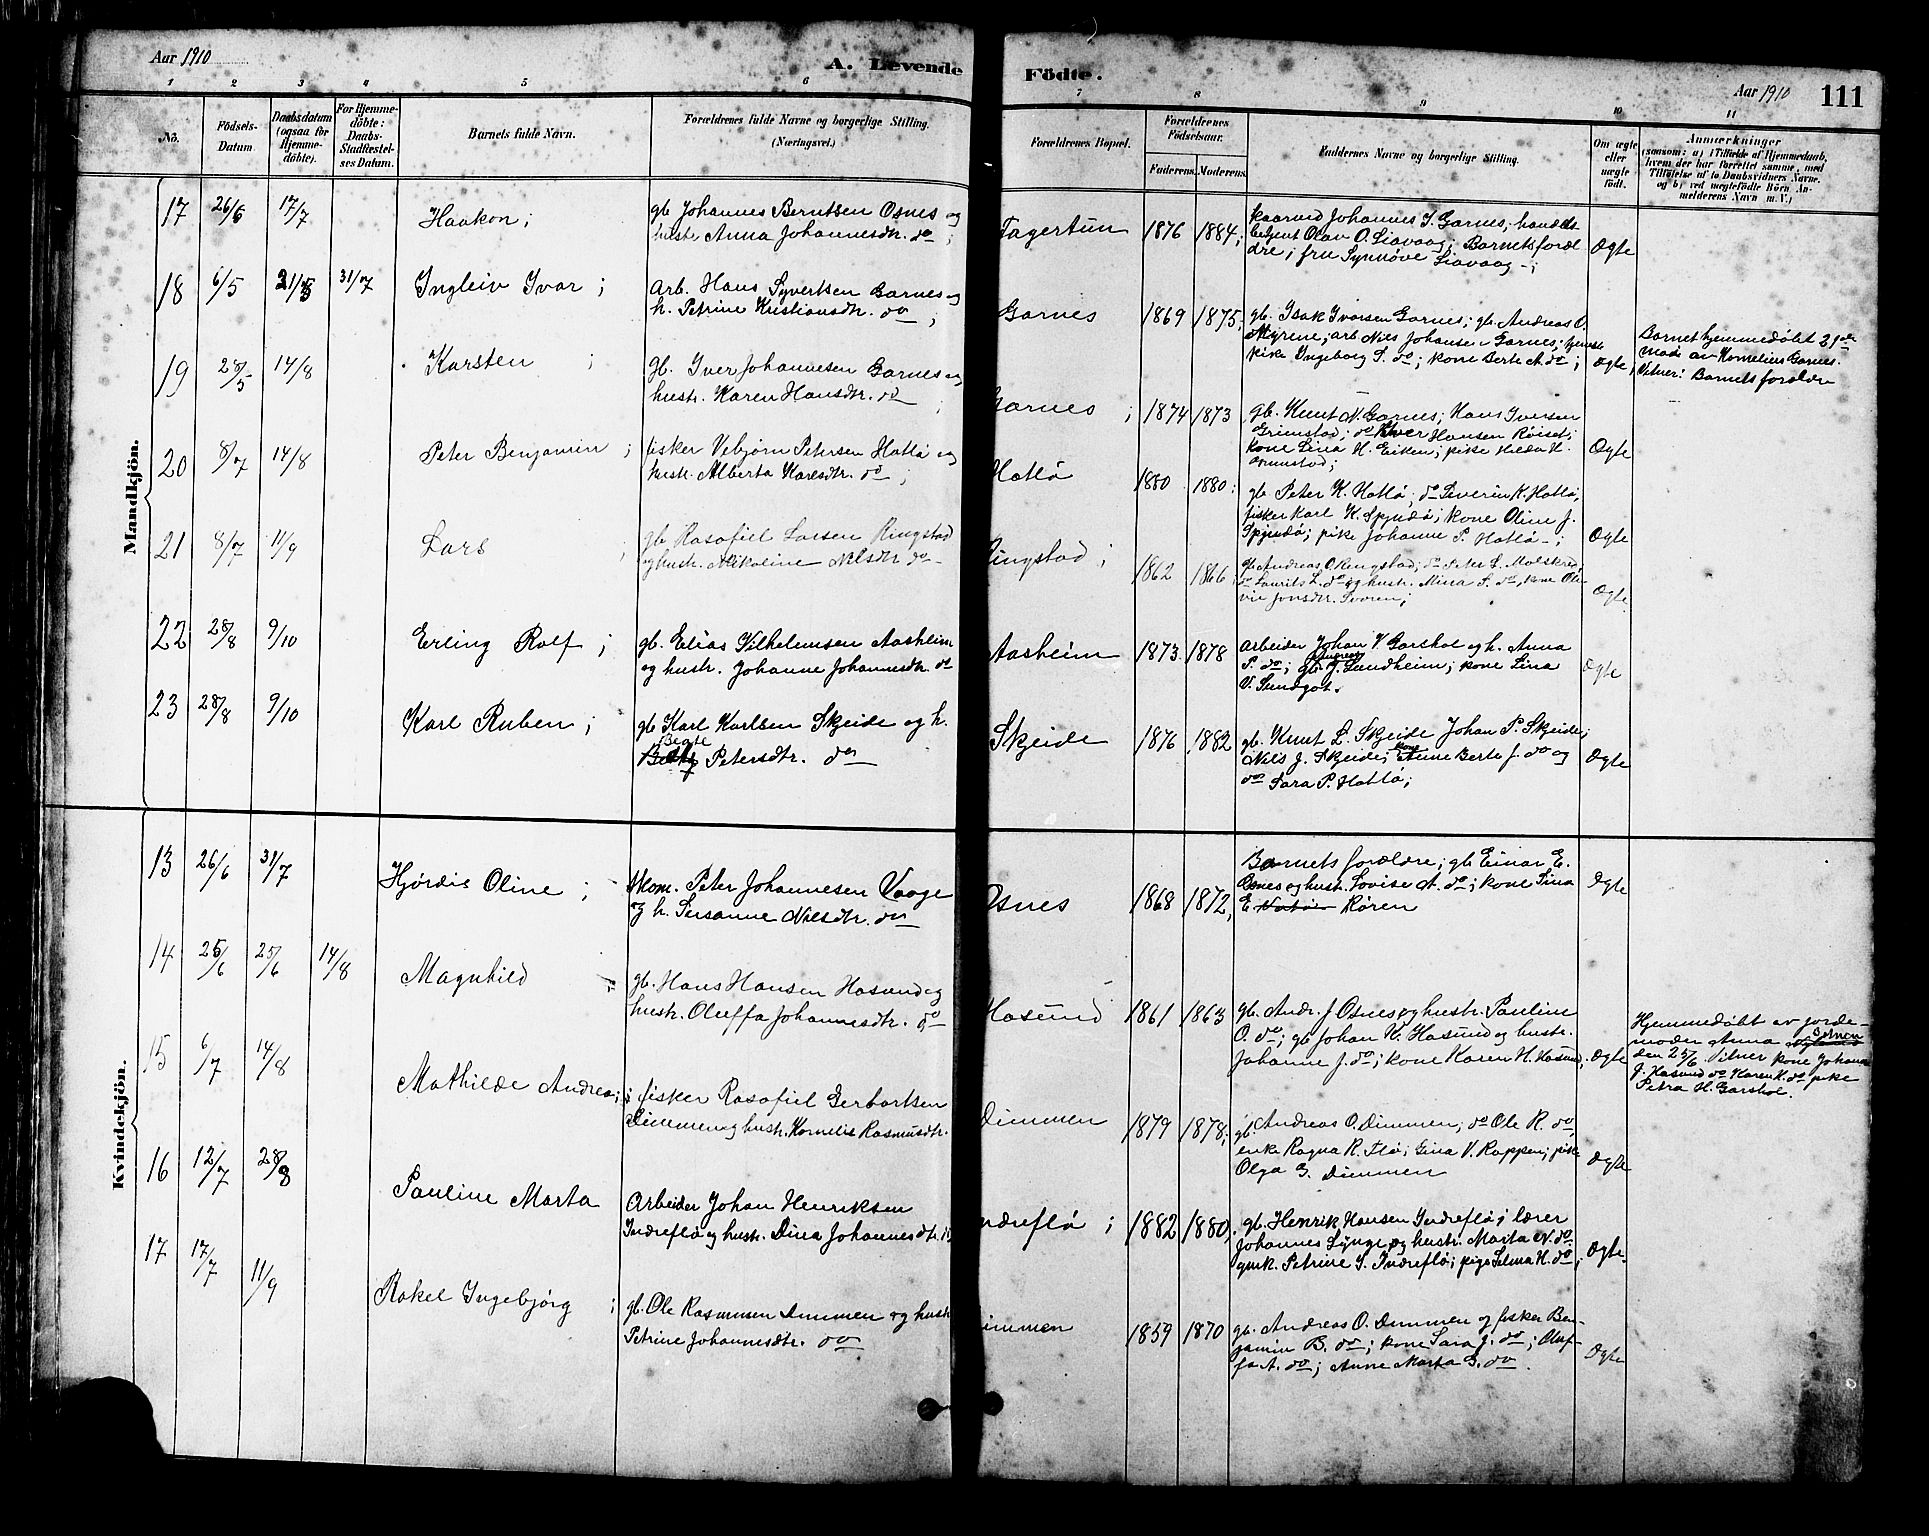 Aar 1910
A. Levende
Födte.
Aar 1910
111
1 2 3 4 5 6 7 8 9 10 11
No.
Födsels-
Datum.
Daabsdatum
(ogsaa for
Hjemme-
döbte).
For Hjemme-
döbte:
Daabs-
Stadfæstel-
ses Datum.
Barnets fulde Navn.
Forældrenes fulde Navne og borgerlige Stilling.
(Næringsvei.)
Forældrenes Bopæl.
Forældrenes
Födselsaar.
Faderens. Moderens.
Faddernes Navne og borgerlige Stilling.
Om ægte
eller
uægte
födt.
Anmærkninger
(saasom: a) i Tilfælde af Hjemmedaab,
hvem der har forrettet samme, med
Tilföielse af to Daabsvidners Navne.
og b) ved uægtefödte Börn An-
melderens Navn m. V.)
Mandkjön.
17 26/6 17/7 Haakon;
gb Johannes Berntsen Osnes og
hustr Anna Johannesdtr. do;
Fagertun 1876 1884;
Johannes J. Garnes;
Olav O. Liavaag; Barnets foræl
dre; fru Synnöve Liavaag;
Ægte
18 6/5 21/5 31/7 Ingleiv Ivar;
Arb. Hans Syvertsen Garnes og
h. Petrine Kristiansdtr. do;
Garnes 1869 1875;
gb. Isak Ivarsen Garnes; gb. Andreas O.
Myrene; arb Nils Johansen Garnes;
pike Ingeborg S. do; kone Berte A. do;
Ægte;
Barnet hjemmedøbt 21de
mai av Kornelius Garnes.
Vitner: Barnets forældre
19 28/5 14/8 Karsten;
gb. Iver Johannesen Garnes og
hustr. Karen Hansdtr. do;
Garnes; 1874 1873
gb. Knut N. Garnes; Hans Iversen
Grimstad; do Iver Hansen Röiset;
kone Lina H. Eiken; pike Hilda K.
Grimstad;
Ægte
20 8/7 14/8 Peter Benjamin;
fisker Vebjørn Petersen Hatlö og
hustr. Alberta Karlsdtr. do;
Hatlö 1880 1880;
gb Peter K. Hatlö; do Severin K. Hatlö;
fisker Karl K. Spjudö; kone Oline J.
Spjudö; pike Johanne P. Hatlö;
Ægte
21 8/7 11/9 Lars;
gb Rasofiel Larsen Ringstad
og hustr. Nikoline Nilsdtr do
Ringstad; 1862 1866;
gb. Andreas O. Ringstad; do Peter L. Molskred;
do Laurits L. do og hustr. Mina S. do, kone Oli-
vie Jonsdtr. Svoren;
Ægte
22 28/8 9/10 Erling Rolf;
gb. Elias Vilhelmsen Aasheim
og hustr. Johanne Johannesdtr. do
Aasheim 1873 1878
Arbeider Johan V Garshol og h. Anna
P. do; gb. Andreas J. Sundheim; kone Lina
V. Sundgot.
Ægte
23 28/8 9/10 Karl Ruben;
gb Karl Karlsen Skeide og h.
Beate Petersdtr. do
Skjeide 1876 1882
gb. Knut L. Skjeide Johan P. Skjeide;
Nils J. Skjeide; kone Anne Berte J. do og
do Sara P. Hatlö;
Ægte
Kvindekjön.
13 26/6 31/7 Hjördis Oline;
Skom. Peter Johannesen Vaage
og h. Susanne Nilsdtr. do
Osnes 1868 1872;
Barnets forældre; gb Einar E.
Osnes og hust. Lovise A. do; kone Sina
E Røren
Ægte
14 25/6 25/6 14/8 Magnhild
gb. Hans Hansen Hasund og
hustr. Oluffa Johannesdtr. do
Hasund 1861 1863
gb. Andr. J Osnes og hustr. Pauline
O. do; gb Johan K. Hasund og hustr.
Johanne J. do; kone Karen H. Hasund;
Ægte
Hjemmedøbt av jorde-
moder Anna
den 25/6 Vitner kone Johanne
J. Hasund do Karen H. do pike
Petra H. Garshol.
15 6/7 14/8 Mathilde Andrea;
fisker Rasofiel Gerhartsen
Dimmen og hustr. Kornelie Rasmusdtr.
Dimmen 1879 1878;
gb. Andreas O. Dimmen; do Ole R. do,
enke Ragna R. Flö; Gina V. Rappen; pike
Olga G. Dimmen
Ægte
16 12/7 28/8 Pauline Marta
Arbeider Johan Henriksen
Indreflö og hustr. Dina Johannesdtr.
Indreflö; 1882 1880;
gb. Henrik Hansen Indreflö; lærer
Johannes Lynge og hustr. Marta N. do
gmk. Petrine I. Indreflö; pige Selma H. do;
Ægte.
17 17/7 11/9 Rakel Ingebjørg;
gb. Ole Rasmussen Dimmen og hustr
Petrine Johannesdtr. do
Dimmen 1859 1870
gb. Andreas O. Dimmen og fisker Ben-
jamin B. do; kone Sara J. do; Oluf-
fa A. do; Anne Marta G. do.
Ægte